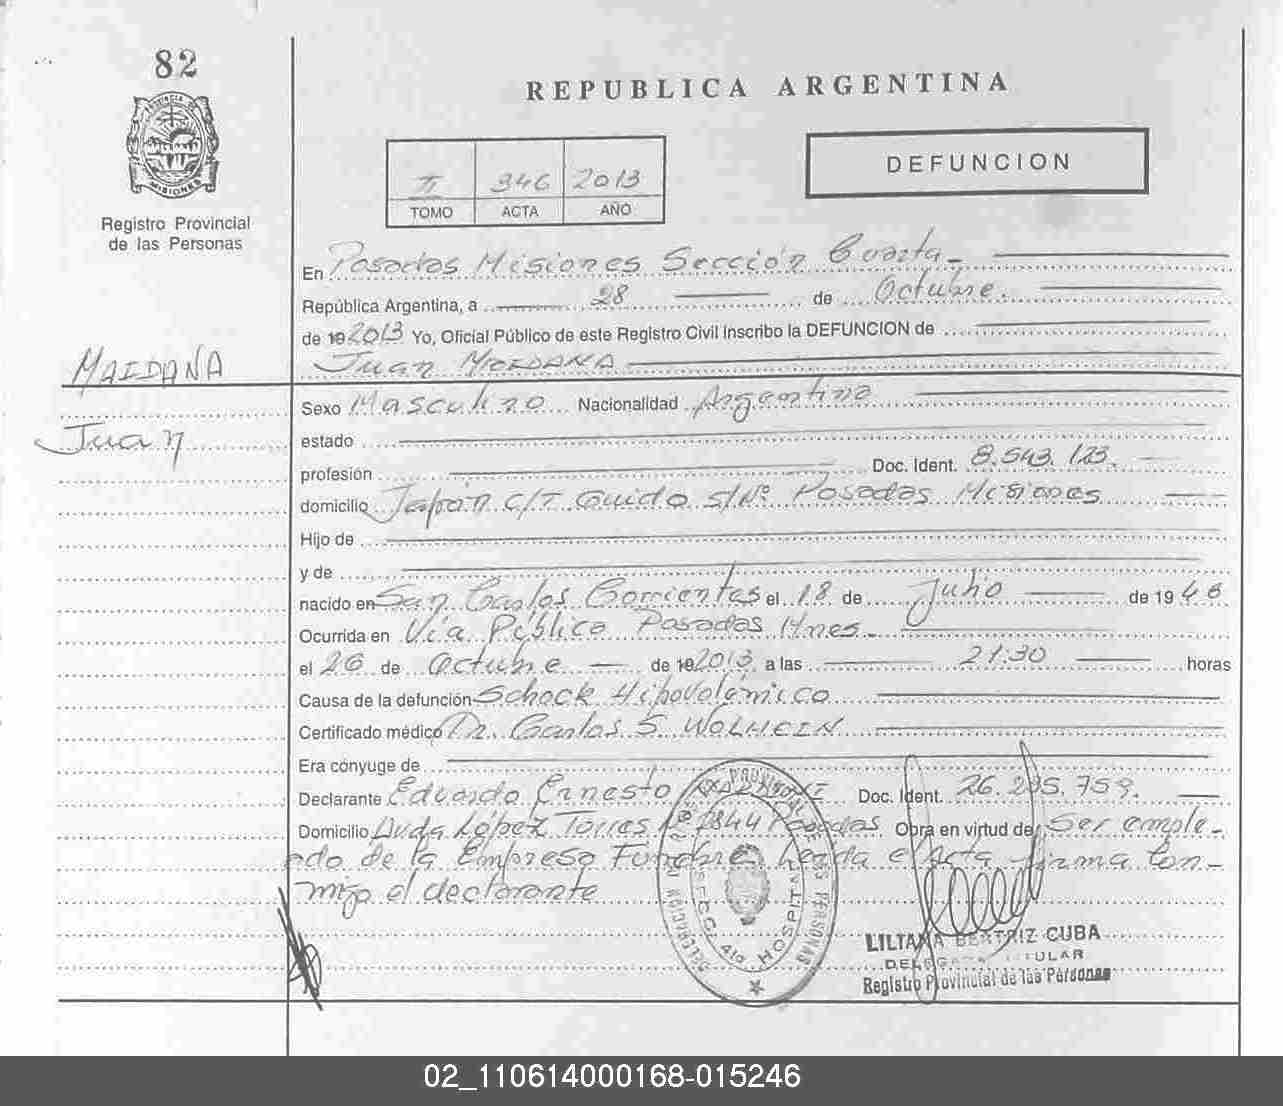 82
REPUBLICA ARGENTINA
PROVINCIA DE
MISIONES
Registro Provincial
de las Personas
II 346 2013
TOMO ACTA AÑO
DEFUNCION
En Posadas Misiones Sección Cuarta
República Argentina, a 28 de Octubre.
de 19 2013 Yo, Oficial Público de este Registro Civil Inscribo la DEFUNCION de
MAIDANA
Juan MAIDANA
Juan
Sexo Masculino Nacionalidad Argentina
estado
profesión Doc. Ident. 8.543.123.
domicilio Japón C/T Guido S/Nº Posadas Misiones
Hijo de
y de
nacido en San Carlos Corrientes el 18 de Julio de 19 48
Ocurrida en Vía Pública Posadas Mnes.
el 26 de Octubre de 19 2013 a las 21:30 horas
Causa de la defunción Schock Hipovolémico
Certificado médico Dr. Carlos S. WOLHEIN
Era cónyuge de
Declarante Eduardo Ernesto Doc. Ident. 26.295.759.
Domicilio Avda López Torres Nº 1844 Posadas Obra en virtud de Ser emple-
ado de la Empresa Fúnebre leída el Acta firma con-
migo el declarante
SECC. 4ta. HOSPITAL
LILIANA BEATRIZ CUBA
DELEGADA TITULAR
Registro Provincial de las Personas
02_110614000168-015246